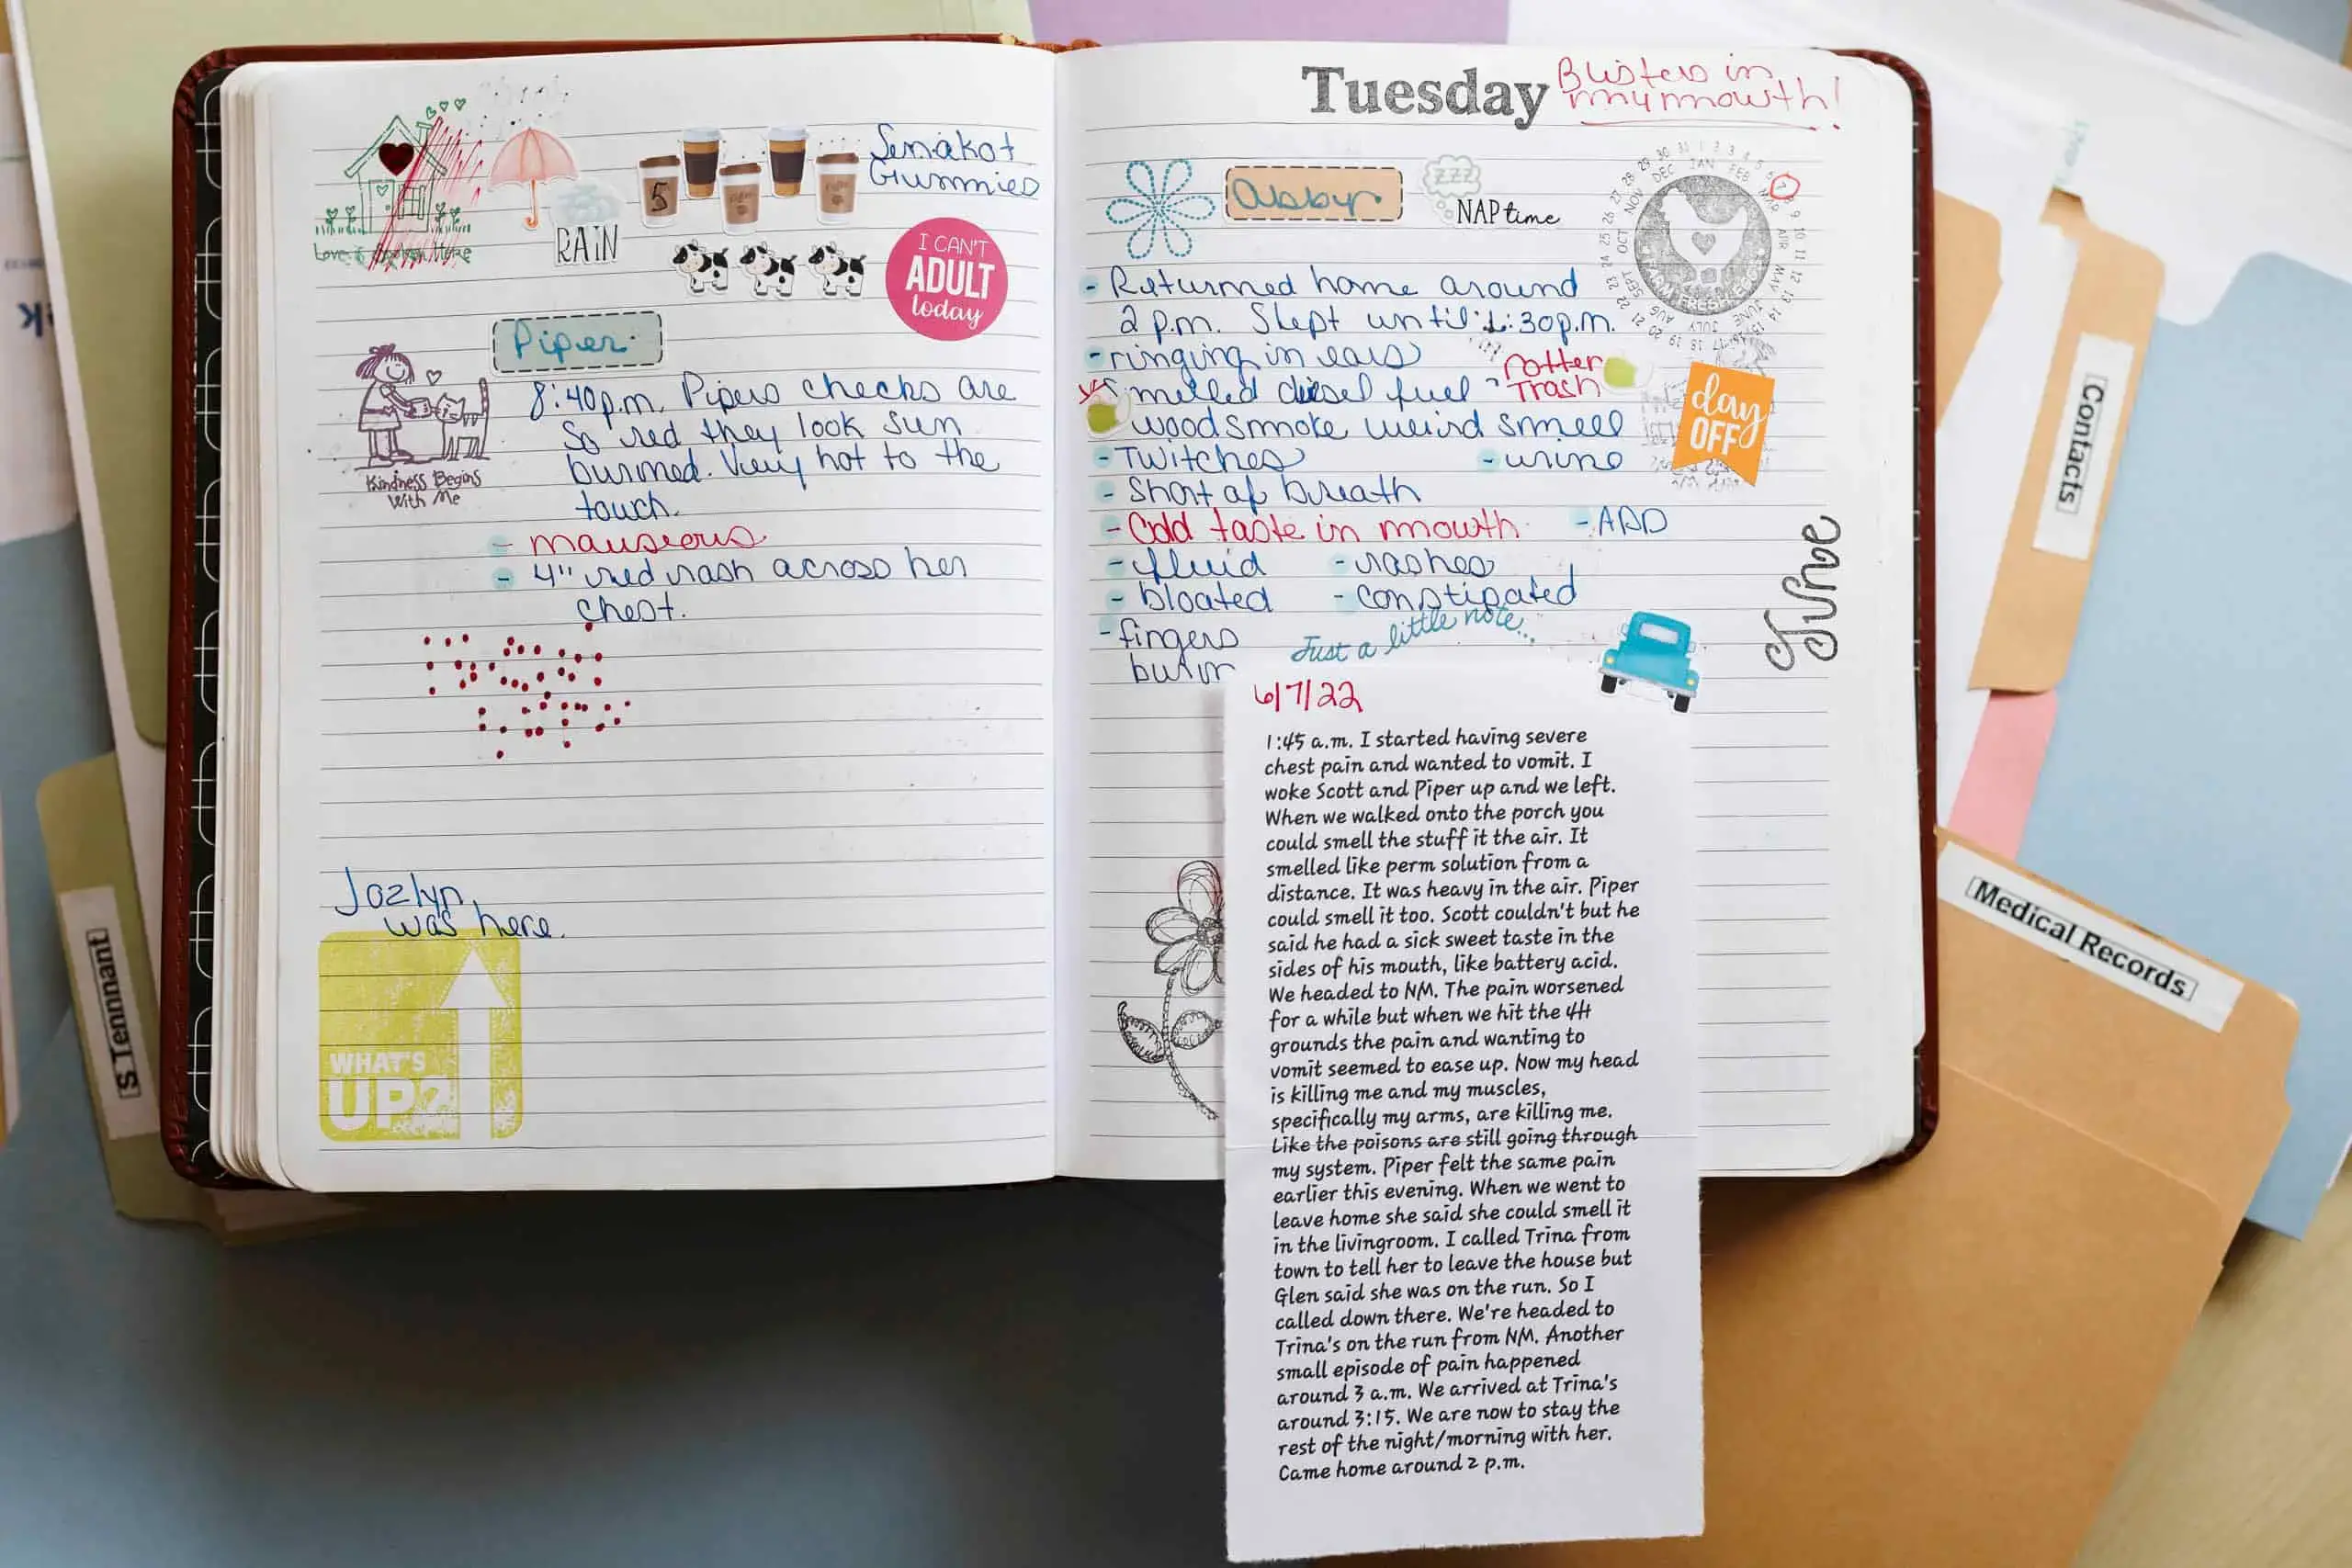 Love is Spoken Here
RAIN
5
Senakot
Gummies
I CAN'T
ADULT
today
Piper
Kindness Begins
With Me
8:40p.m. Pipers checks are
so red they look sun
burned. Very hot to the
touch.
- nauseous
- 4" red rash across her
chest.
Jazlyn
was here.
WHAT'S
UP?
Tuesday
Blisters in
my mouth!
Abby
zzz
NAP time
JAN FEB MAR APR MAY JUNE JULY AUG SEPT OCT NOV DEC
FARM FRESH EGGS
- Returned home around
2 p.m. Slept until 2:30p.m.
- ringing in ears
- Smelled diesel fuel - rotten
Trash
woodsmoke weird smell
- Twitches - urine
- Short of breath
- Cold taste in mouth - ADD
- fluid - rashes
- bloated - constipated
- fingers
burn
day
OFF
June
Just a little note...
6/7/22
1:45 a.m. I started having severe
chest pain and wanted to vomit. I
woke Scott and Piper up and we left.
When we walked onto the porch you
could smell the stuff it the air. It
smelled like perm solution from a
distance. It was heavy in the air. Piper
could smell it too. Scott couldn't but he
said he had a sick sweet taste in the
sides of his mouth, like battery acid.
We headed to NM. The pain worsened
for a while but when we hit the 4H
grounds the pain and wanting to
vomit seemed to ease up. Now my head
is killing me and my muscles,
specifically my arms, are killing me.
Like the poisons are still going through
my system. Piper felt the same pain
earlier this evening. When we went to
leave home she said she could smell it
in the livingroom. I called Trina from
town to tell her to leave the house but
Glen said she was on the run. So I
called down there. We're headed to
Trina's on the run from NM. Another
small episode of pain happened
around 3 a.m. We arrived at Trina's
around 3:15. We are now to stay the
rest of the night/morning with her.
Came home around 2 p.m.
S Tennnant
Contacts
Medical Records